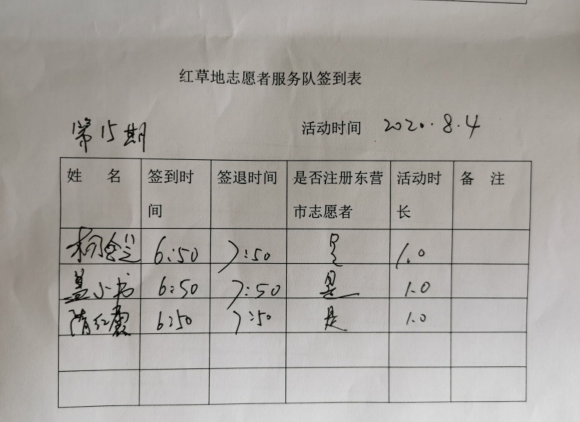 红草地志愿者服务队签到表
第15期 活动时间 2020.8.4
姓 名 签到时间 签退时间 是否注册东营市志愿者 活动时长 备 注
6:50 7:50 是 1.0
盖小书 6:50 7:50 是 1.0
隋红霞 6:50 7:50 是 1.0